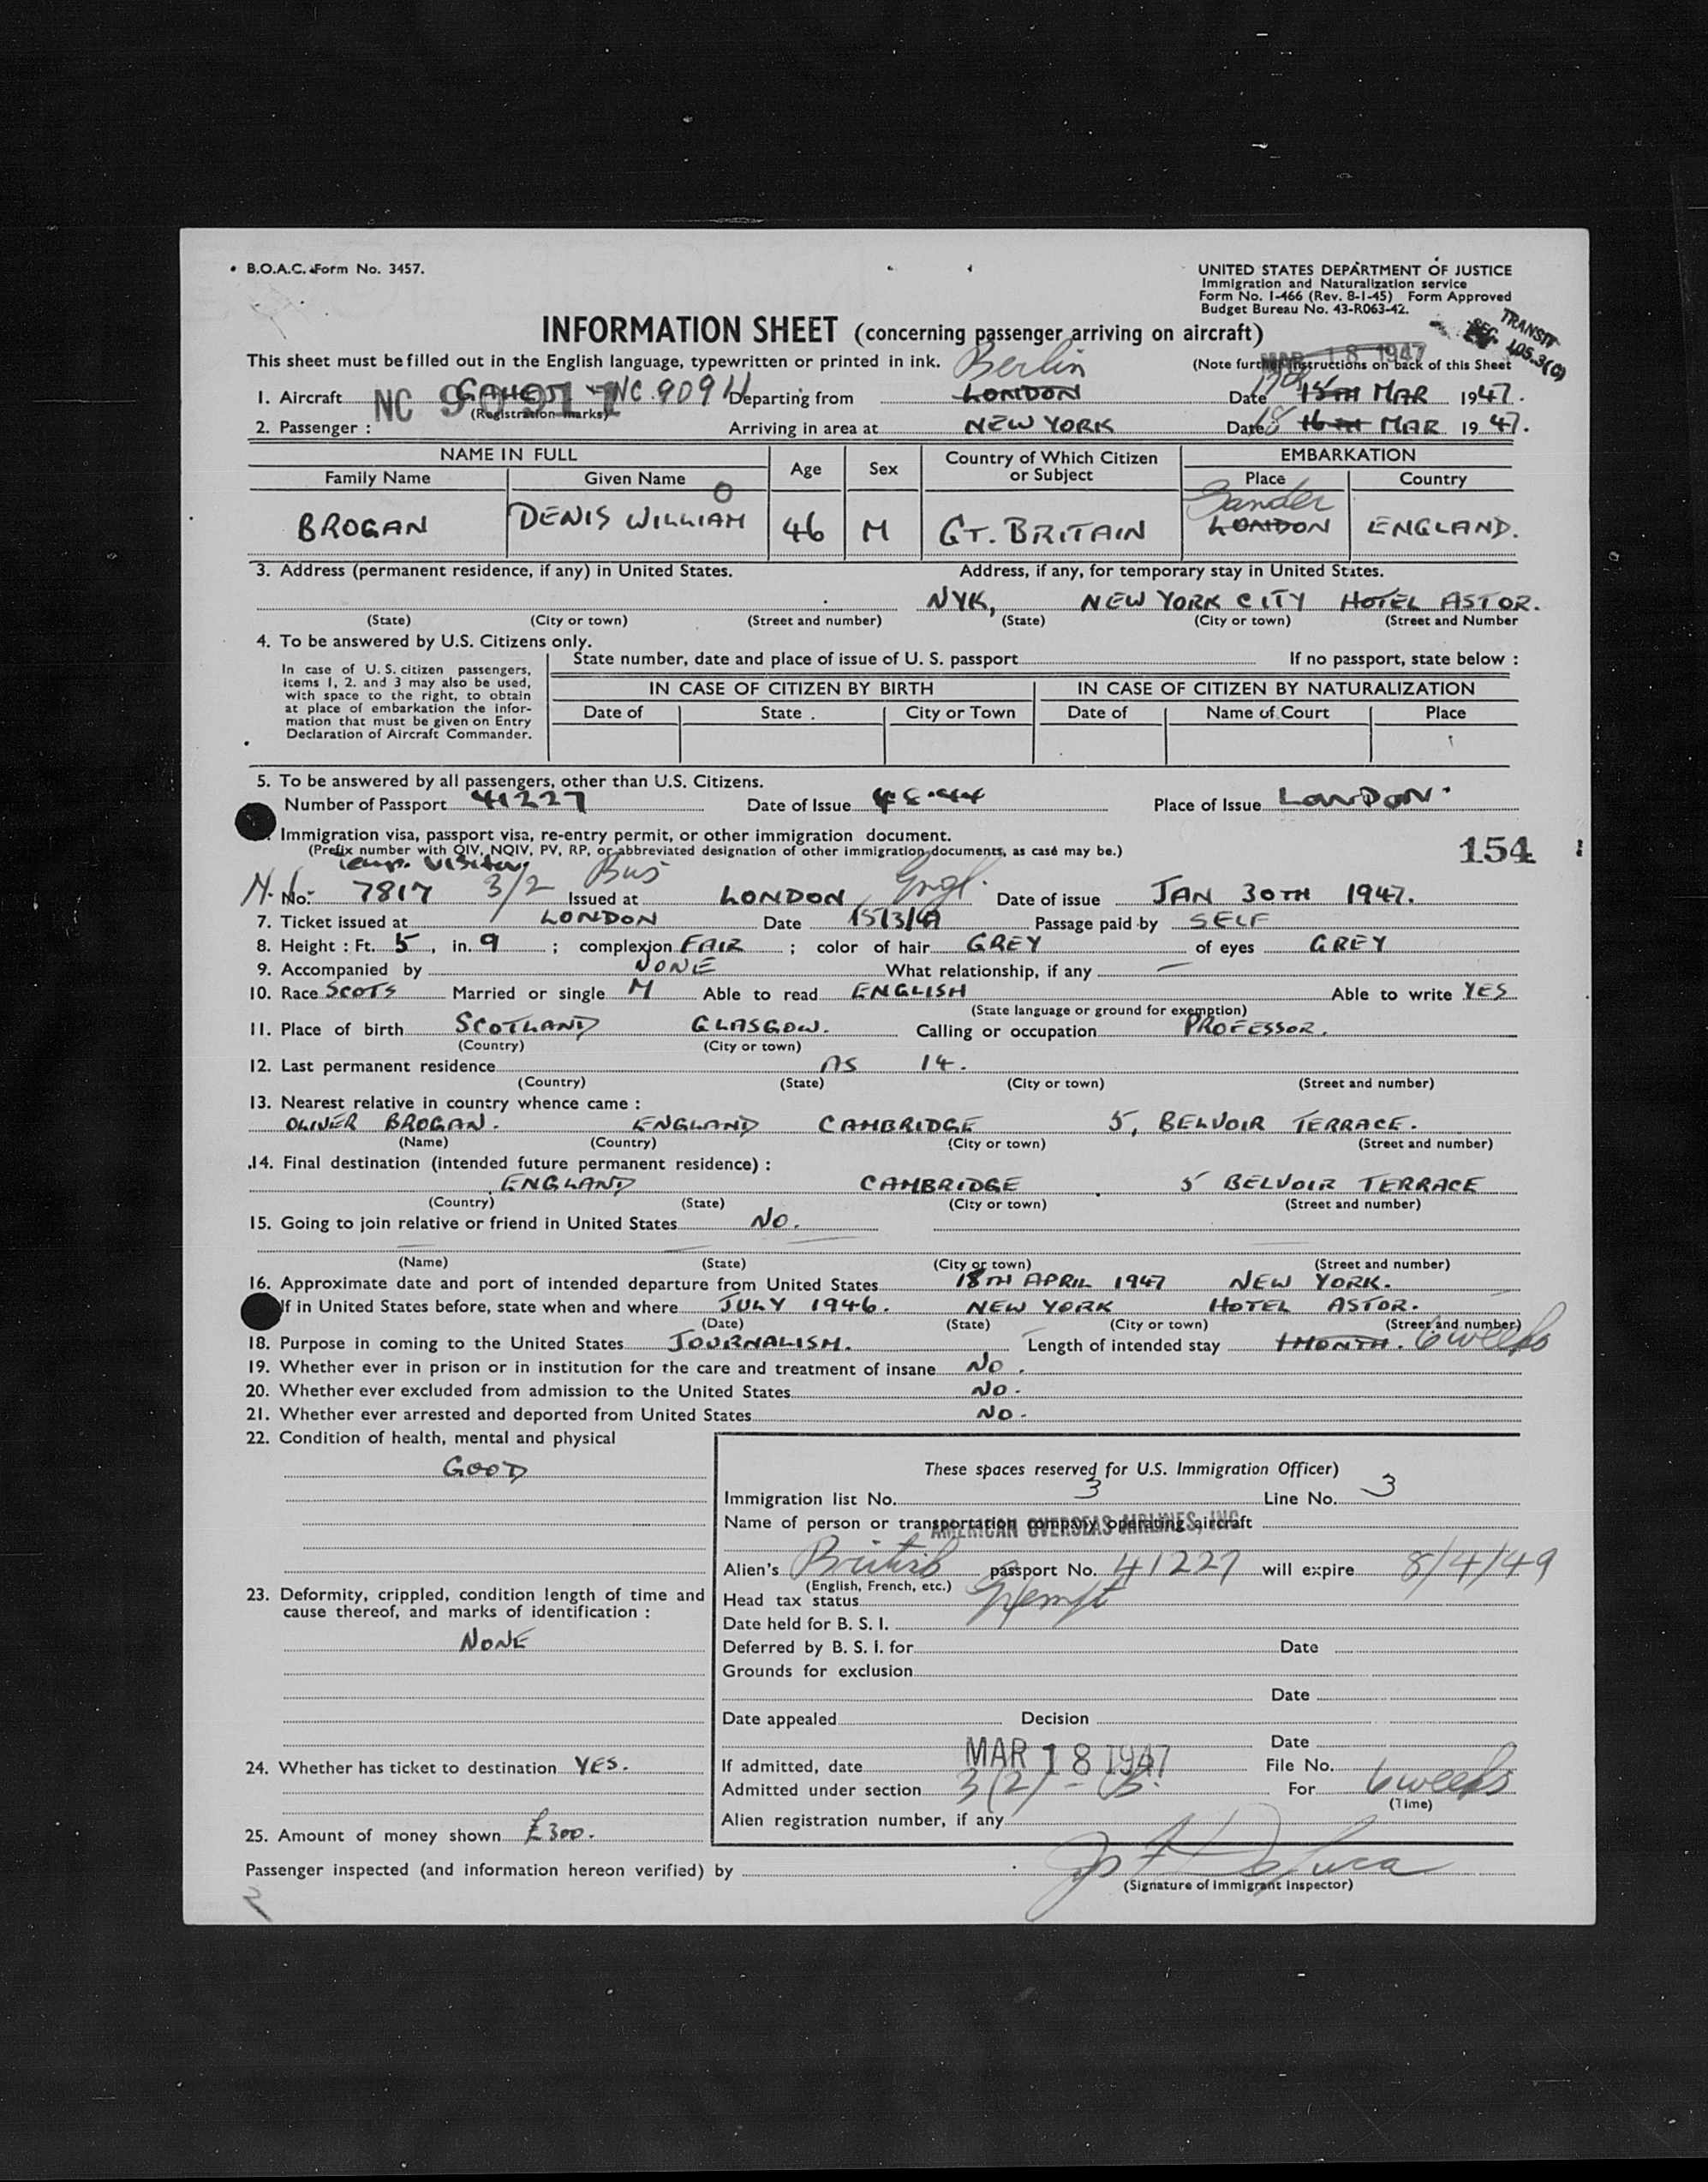 B.O.A.C. Form No. 3457.
UNITED STATES DEPARTMENT OF JUSTICE
Immigration and Naturalization service
Form No. I-466 (Rev. 8-1-45) Form Approved
Budget Bureau No. 43-R063-42.
TRANSIT
SEC. 105.3(c)
INFORMATION SHEET (concerning passenger arriving on aircraft)
This sheet must be filled out in the English language, typewritten or printed in ink.
MAR 18 1947
(Note further instructions on back of this Sheet
Berlin
1. Aircraft NC 90911 Departing from LONDON Date 17th 15TH MAR 1947.
(Registration marks)
2. Passenger : Arriving in area at NEW YORK Date 18 16TH MAR 1947.
NAME IN FULL Age Sex Country of Which Citizen or Subject EMBARKATION
Family Name Given Name Place Country
Gander
BROGAN DENIS WILLIAM O 46 M GT. BRITAIN LONDON ENGLAND.
3. Address (permanent residence, if any) in United States. Address, if any, for temporary stay in United States.
NYK, NEW YORK CITY HOTEL ASTOR.
(State) (City or town) (Street and number) (State) (City or town) (Street and Number
4. To be answered by U.S. Citizens only.
In case of U.S. citizen passengers, items 1, 2. and 3 may also be used, with space to the right, to obtain at place of embarkation the information that must be given on Entry Declaration of Aircraft Commander.
State number, date and place of issue of U. S. passport If no passport, state below :
IN CASE OF CITIZEN BY BIRTH IN CASE OF CITIZEN BY NATURALIZATION
Date of State . City or Town Date of Name of Court Place
5. To be answered by all passengers, other than U.S. Citizens.
Number of Passport 41227 Date of Issue Place of Issue LONDON.
Immigration visa, passport visa, re-entry permit, or other immigration document.
(Prefix number with QIV, NQIV, PV, RP, or abbreviated designation of other immigration documents, as case may be.)
154
Temp. Visitor
No. 7817 3/2 Bus Issued at LONDON, Engl. Date of issue JAN 30TH 1947.
7. Ticket issued at LONDON Date 15/3/47 Passage paid by SELF
8. Height : Ft. 5, in. 9 ; complexion FAIR ; color of hair GREY of eyes GREY
9. Accompanied by NONE What relationship, if any —
10. Race SCOTS Married or single M Able to read ENGLISH Able to write YES
(State language or ground for exemption)
11. Place of birth SCOTLAND GLASGOW. Calling or occupation PROFESSOR.
(Country) (City or town)
12. Last permanent residence AS 14.
(Country) (State) (City or town) (Street and number)
13. Nearest relative in country whence came :
OLIVER BROGAN. ENGLAND CAMBRIDGE 5, BELVOIR TERRACE.
(Name) (Country) (City or town) (Street and number)
14. Final destination (intended future permanent residence) :
ENGLAND CAMBRIDGE 5 BELVOIR TERRACE
(Country) (State) (City or town) (Street and number)
15. Going to join relative or friend in United States NO.
(Name) (State) (City or town) (Street and number)
16. Approximate date and port of intended departure from United States 18TH APRIL 1947 NEW YORK.
If in United States before, state when and where JULY 1946. NEW YORK HOTEL ASTOR.
(Date) (State) (City or town) (Street and number)
18. Purpose in coming to the United States JOURNALISM. Length of intended stay 1 MONTH. 6 weeks
19. Whether ever in prison or in institution for the care and treatment of insane NO.
20. Whether ever excluded from admission to the United States NO.
21. Whether ever arrested and deported from United States NO.
22. Condition of health, mental and physical
GOOD
These spaces reserved for U.S. Immigration Officer)
Immigration list No. 3 Line No. 3
Name of person or transportation company operating aircraft
AMERICAN OVERSEAS AIRLINES, INC
Alien's British passport No. 41227 will expire 8/4/49
(English, French, etc.)
Head tax status Exempt
Date held for B. S. I.
Deferred by B. S. I. for Date
Grounds for exclusion
Date
Date appealed Decision
Date
If admitted, date MAR 18 1947 File No.
Admitted under section 3(2) - B. For 6 weeks
(Time)
Alien registration number, if any
23. Deformity, crippled, condition length of time and cause thereof, and marks of identification :
NONE
24. Whether has ticket to destination YES.
25. Amount of money shown £300.
Passenger inspected (and information hereon verified) by
(Signature of Immigrant Inspector)
2